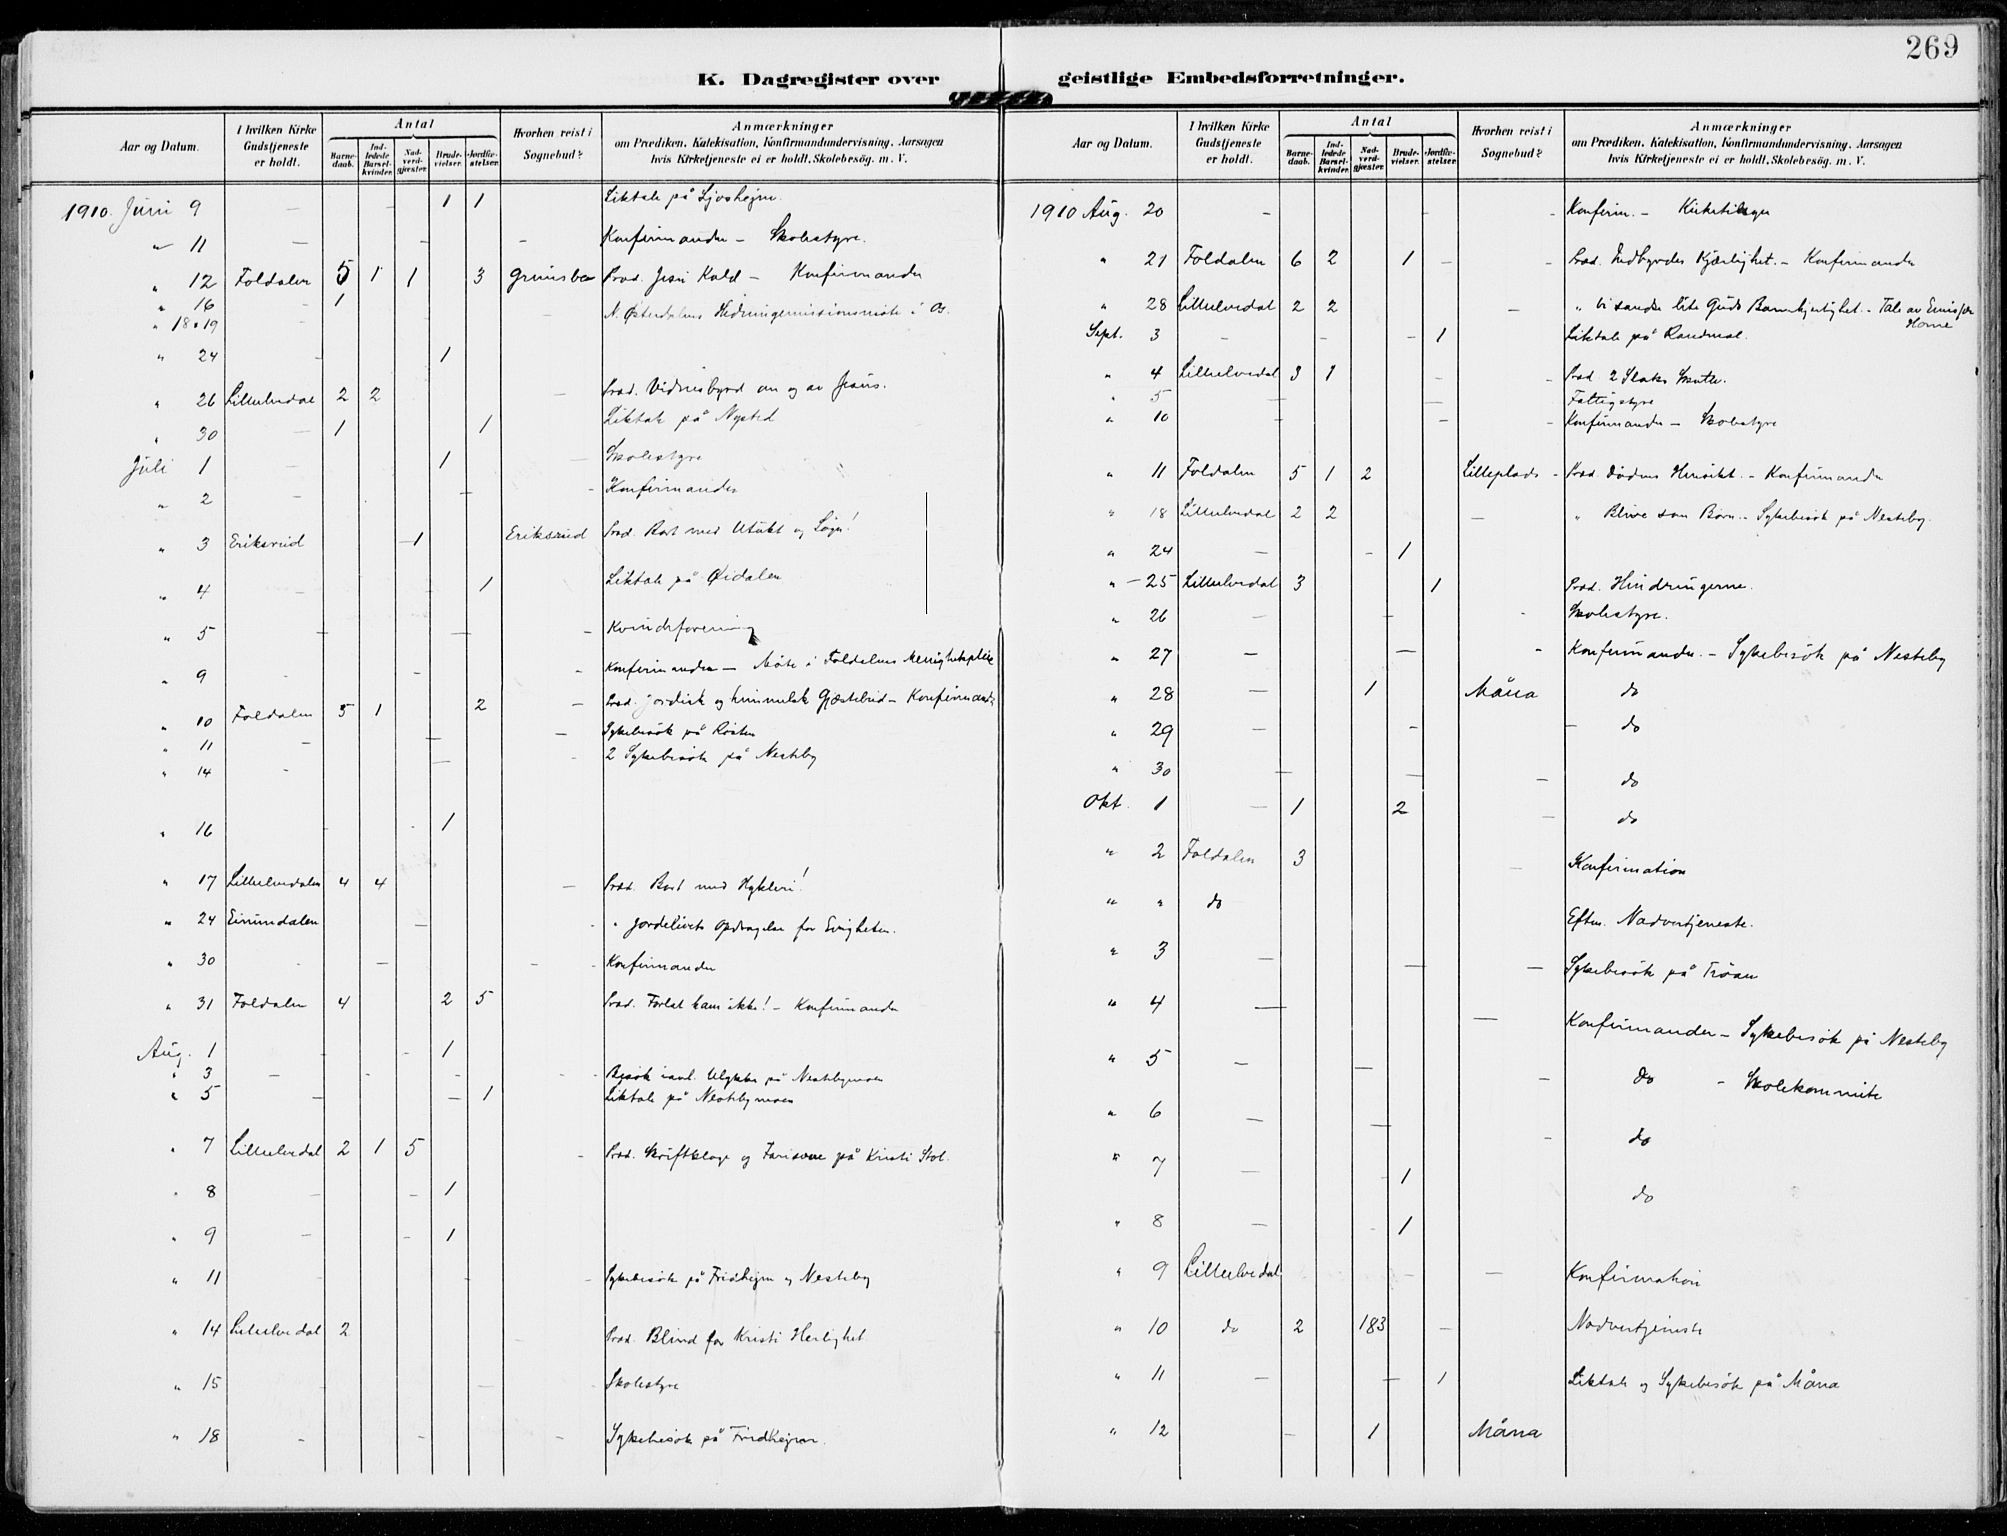 269
K. Dagregister over geistlige Embedsforretninger.
Aar og Datum. | I hvilken Kirke Gudstjeneste er holdt. | Antal | Barnedaab. | Indledede Barselkvinder. | Nadverdgjæster. | Brudevielser. | Jordfæstelser. | Hvorhen reist i Sognebud? | Anmærkninger om Prædiken, Katekisation, Konfirmandundervisning, Aarsagen hvis Kirketjeneste ei er holdt, Skolebesøg. m. V.
1910. Juni 9 – – 1 1 Liktale på
" 11 – – – Konfirmander – Skolestyre.
" 12 Foldalen 5 1 1 3 Grimsbu Præd. Jesu Kald – Konfirmander
" 16 1
" 18 o 19 – – N. Østerdalens Hedningemissionsmøte i
" 24 – 1
" 26 Lilleelvedal 2 2 – Præd. Vidnesbyrd om og av Jesus.
" 30 – 1 1 Liktale på Nysted
Juli 1 – 1 – Skolestyre
" 2 – – Konfirmander
" 3 Eriksrud 1 Eriksrud Præd. Bort med Utukt og Løgn!
" 4 – 1 Liktale på Øidalen
" 5 – – – Kvindeforening
" 9 – – – Konfirmander – Møte i Foldalens Menighetspleie
" 10 Foldalen 5 1 2 – Præd. Jordisk og himmelsk Gjæstebud – Konfirmander
" 11 – – – Sykebesøk på Røsten
" 14 – – – 2 Sykebesøk på Nesteby
" 16 – – 1
" 17 Lilleelvedalen 4 4 – Præd. Bort med Hykleri!
" 24 Einundalen – " Jordelivets Opdragelse for Evigheten.
" 30 – – – Konfirmander
" 31 Foldalen 4 2 5 Præd. Forlat ham ikke! – Konfirmander
Aug. 1 – – 1
" 3 – – – – Besøk i anl. Ulykke på Nestebymoen
" 5 – – 1 Liktale på Nestebymoen
" 7 Lilleelvedal 2 1 5 – Præd. Skriftkloge og Farisæere på Kristi Stol.
" 8 – – 1
" 9 – – 1
" 11 – – Sykebesøk på Fridheim og Nesteby
" 14 Lilleelvedal 2 Præd. Blind for Kristi Herlighet
" 15 – – Skolestyre
" 18 – – – Sykebesøk på Fridheim.
Aar og Datum. | I hvilken Kirke Gudstjeneste er holdt. | Antal | Barnedaab. | Indledede Barselkvinder. | Nadverdgjæster. | Brudevielser. | Jordfæstelser. | Hvorhen reist i Sognebud? | Anmærkninger om Prædiken, Katekisation, Konfirmandundervisning, Aarsagen hvis Kirketjeneste ei er holdt, Skolebesøg. m. V.
1910 Aug. 20 – – – Konfirm. – Kirketilsyn
" 21 Foldalen 6 2 1 – – Præd. Indbyrdes Kjærlighet. – Konfirmander
" 28 Lilleelvedal 2 2 – " Vi sandse lite Guds Barmhjertighet. – Tale av Emissær Horne
Sept. 3 – – – 1 Liktale på Randmæl.
" 4 Lilleelvedal 3 1 – – Præd. 2 Slaks
" 5 – – Fattigstyre
" 10 – – – Konfirmander – Skolestyre
" 11 Foldalen 5 1 2 Lilleplads – Præd. Dødens Hensikt. – Konfirmander
" 18 Lilleelvedal 2 2 – " Blive som Barn. – Sykebesøk på Nesteby.
" 24 – – 1
" – 25 Lilleelvedal 3 1 Præd. Hindringerne.
" 26 – – – Skolestyre.
" 27 – – – Konfirmander. – Sykebesøk på Nesteby
" 28 – 1 Måna do
" 29 – – – do
" 30 – – – do
Okt. 1 – 1 2 – do
" 2 Foldalen 3 – Konfirmation
" " do Efterm. Nadvertjeneste.
" 3 – – – Sykebesøk på Trøan
" 4 – – Konfirmander – Sykebesøk på Nesteby
" 5 – – – do – Skolekommite
" 6 – – do
" 7 – – 1 do
" 8 – – 1
" 9 Lilleelvedal – – Konfirmation
" 10 do 2 183 – Nadvertjeneste
" 11 – – 1 Liktale og Sykebesøk på Måna
" 12 – 1 Måna